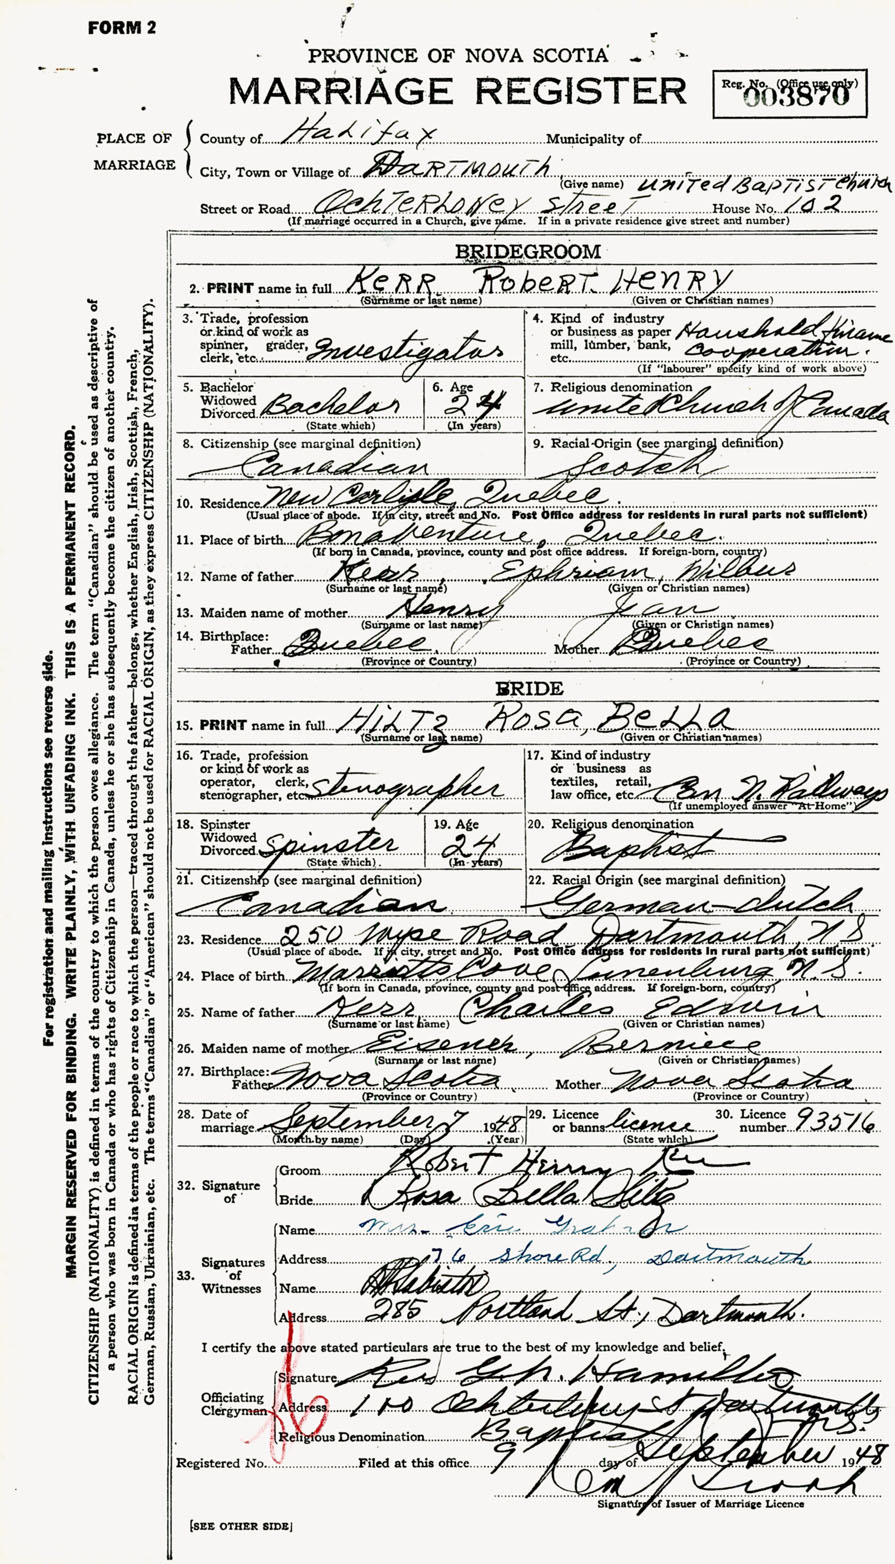 FORM 2
PROVINCE OF NOVA SCOTIA
MARRIAGE REGISTER
Reg. No. (Office use only)
003870
PLACE OF MARRIAGE
County of Halifax Municipality of
City, Town or Village of Dartmouth
(Give name) United Baptist Church
Street or Road Ochterloney Street House No. 102
(If marriage occurred in a Church, give name. If in a private residence give street and number)
BRIDEGROOM
2. PRINT name in full Kerr Robert Henry
(Surname or last name) (Given or Christian names)
3. Trade, profession or kind of work as spinner, grader, clerk, etc. Investigator
4. Kind of industry or business as paper mill, lumber, bank, etc. Houshold finance cooperation.
(If "labourer" specify kind of work above)
5. Bachelor Widowed Divorced Bachelor
(State which)
6. Age 24
(In years)
7. Religious denomination
United Church of Canada
8. Citizenship (see marginal definition)
Canadian
9. Racial Origin (see marginal definition)
Scotch
10. Residence New Carlisle, Quebec.
(Usual place of abode. If in city, street and No. Post Office address for residents in rural parts not sufficient)
11. Place of birth Bonaventure, Quebec.
(If born in Canada, province, county and post office address. If foreign-born, country)
12. Name of father Kerr, Ephriam, Wilbus
(Surname or last name) (Given or Christian names)
13. Maiden name of mother Henry Jean
(Surname or last name) (Given or Christian names)
14. Birthplace:
Father Quebec. Mother Quebec
(Province or Country) (Province or Country)
BRIDE
15. PRINT name in full Hiltz Rosa, Bella
(Surname or last name) (Given or Christian names)
16. Trade, profession or kind of work as operator, clerk, stenographer, etc. Stenographer
17. Kind of industry or business as textiles, retail, law office, etc. Can N. Railways
(If unemployed answer "At Home")
18. Spinster Widowed Divorced Spinster
(State which)
19. Age 24
(In years)
20. Religious denomination
Baptist
21. Citizenship (see marginal definition)
Canadian
22. Racial Origin (see marginal definition)
German-dutch
23. Residence 250 Wyse Road Dartmouth, N S
(Usual place of abode. If in city, street and No. Post Office address for residents in rural parts not sufficient)
24. Place of birth Marriotts Cove, Lunenburg N.S.
(If born in Canada, province, county and post office address. If foreign-born, country)
25. Name of father Kerr Charles Edwin
(Surname or last name) (Given or Christian names)
26. Maiden name of mother Eisener, Berniece
(Surname or last name) (Given or Christian names)
27. Birthplace:
Father Nova Scotia Mother Nova Scotia
(Province or Country) (Province or Country)
28. Date of marriage September 7 1948
(Month by name) (Day) (Year)
29. Licence or banns licence
(State which)
30. Licence number 93516
32. Signature of
Groom Robert Henry Kerr
Bride Rosa Bella Hiltz
33. Signatures of Witnesses
Name Mrs. Eric Graham
Address 76 Shore Rd, Dartmouth
Name
Address 285 Portland St., Dartmouth.
I certify the above stated particulars are true to the best of my knowledge and belief.
Officiating Clergyman
Signature Rev G.N. Hamilton
Address 100 Ochterloney St Dartmouth N.S.
Religious Denomination Baptist
Registered No. Filed at this office 9 day of September 1948
Signature of Issuer of Marriage Licence
[SEE OTHER SIDE]
For registration and mailing instructions see reverse side.
MARGIN RESERVED FOR BINDING. WRITE PLAINLY, WITH UNFADING INK. THIS IS A PERMANENT RECORD.
CITIZENSHIP (NATIONALITY) is defined in terms of the country to which the person owes allegiance. The term "Canadian" should be used as descriptive of
a person who was born in Canada or who has rights of Citizenship in Canada, unless he or she has subsequently become the citizen of another country.
RACIAL ORIGIN is defined in terms of the people or race to which the person—traced through the father—belongs, whether English, Irish, Scottish, French,
German, Russian, Ukrainian, etc. The terms "Canadian" or "American" should not be used for RACIAL ORIGIN, as they express CITIZENSHIP (NATIONALITY).